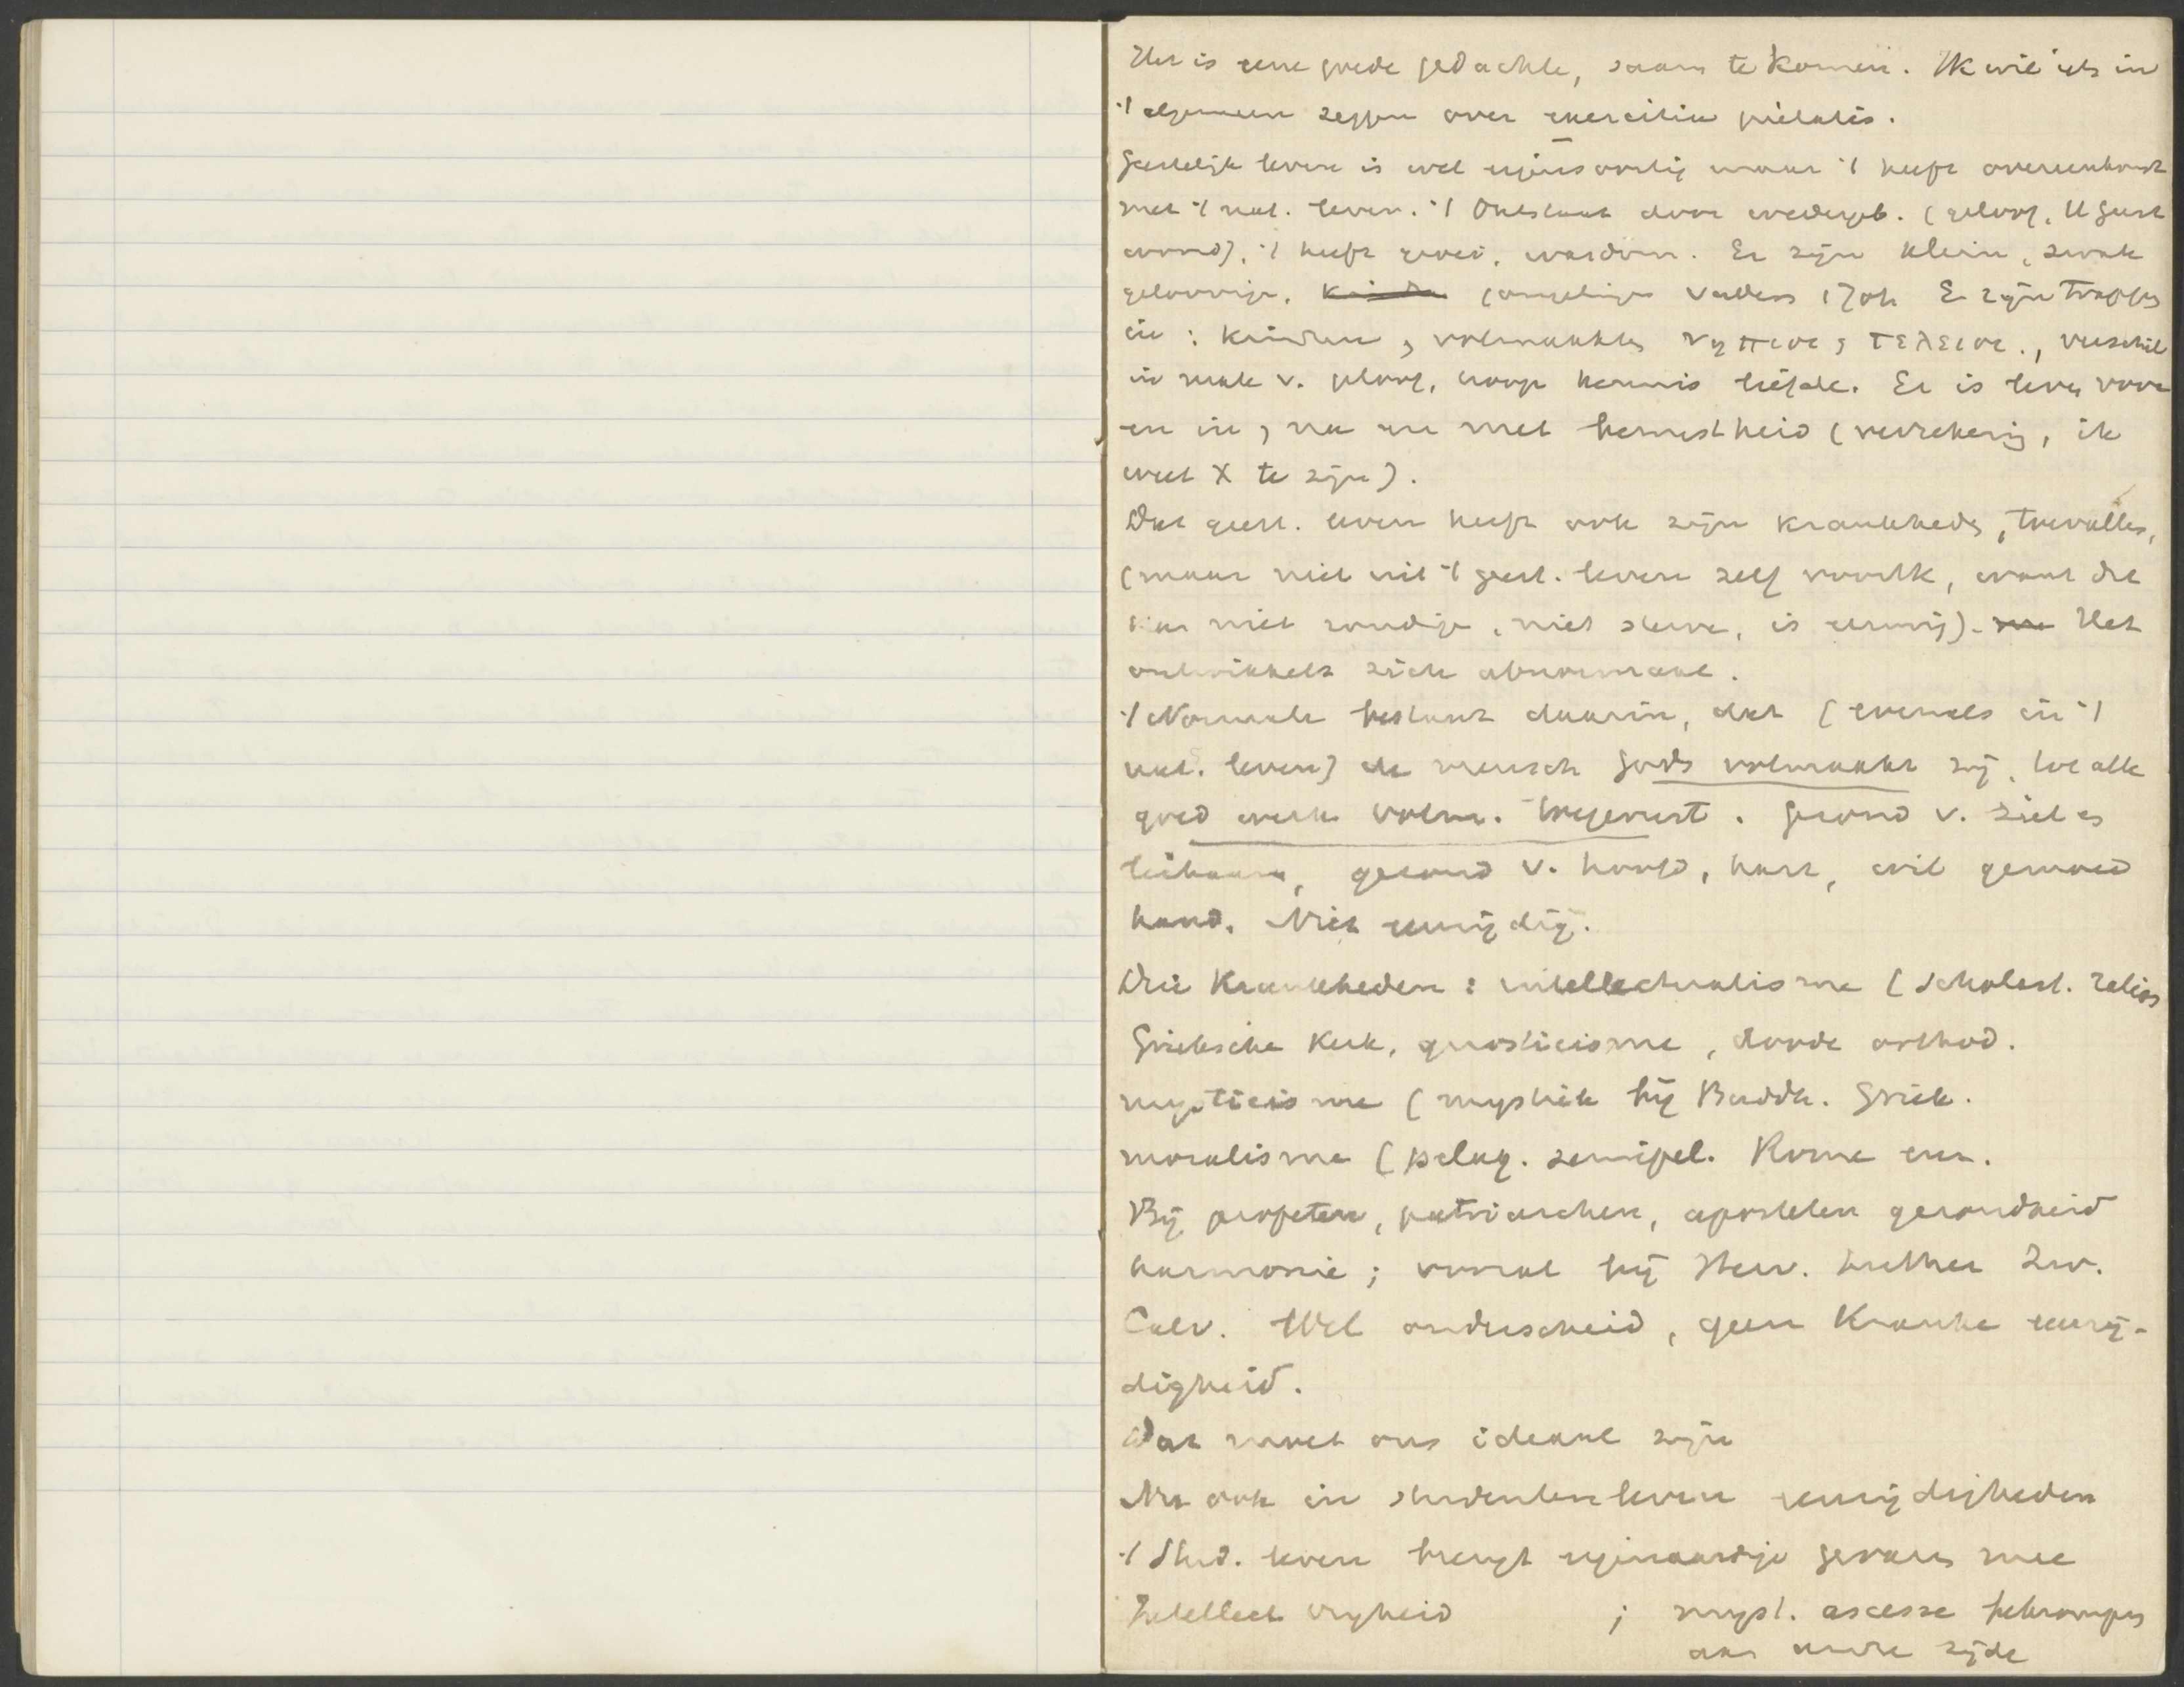 Het is eene goede gedachte, saam te komen. Ik wil iets in
't algemeen zeggen over exercitia pietatis.
Geestelijk leven is wel eigensoortig maar 't heeft overeenkomst
met 't nat. leven. 't Ontstaat door wedergeb. (geloof, H Geest
woord), 't heeft groei, wasdom. Er zijn klein, zwak
geloovige, kinder jongelingen vaders 1 Joh Er zijn trappen
in: kinderen, volmaakten νηπιοι, τελειοι., verschil
in mate v. geloof, hoop kennis liefde. Er is leven voor
en in, na en met bewustheid (verzekering, ik
weet X te zijn).
Dat geest. leven heeft ook zijn krankheden, toevallen,
(maar niet uit 't geest. leven zelf voortk, want dat
kan niet zondigen, niet sterven, is eeuwig). Het
ontwikkelt zich abnormaal.
't Normale bestaat daarin, dat (evenals in 't
nat. leven) de mensch Gods volmaakt zij, tot alle
goed werk volm. toegerust. Gezond v. ziel en
lichaam, gezond v. hoofd, hart, wil gemoed
hand. Niet eenzijdig.
Drie Krankheden: intellectualisme (scholast. religios
Grieksche Kerk, gnosticisme, doode orthod.
mysticisme (mystiek bij Buddh. Griek.
moralisme (pelag. semipel. Rome enz.
Bij profeten, patriarchen, apostelen gezondheid
harmonie; vooral bij Herv. Luther Zw.
Calv. Wel onderscheid, geen Kranke eenzij-
digheid.
Dat moet ons ideaal zijn
Nu ook in studentenleven eenzijdigheden
't Stud. leven brengt eigenaardige gevaren mee
Intellect vrijheid ; myst. ascese bekrompen
aan andre zijde